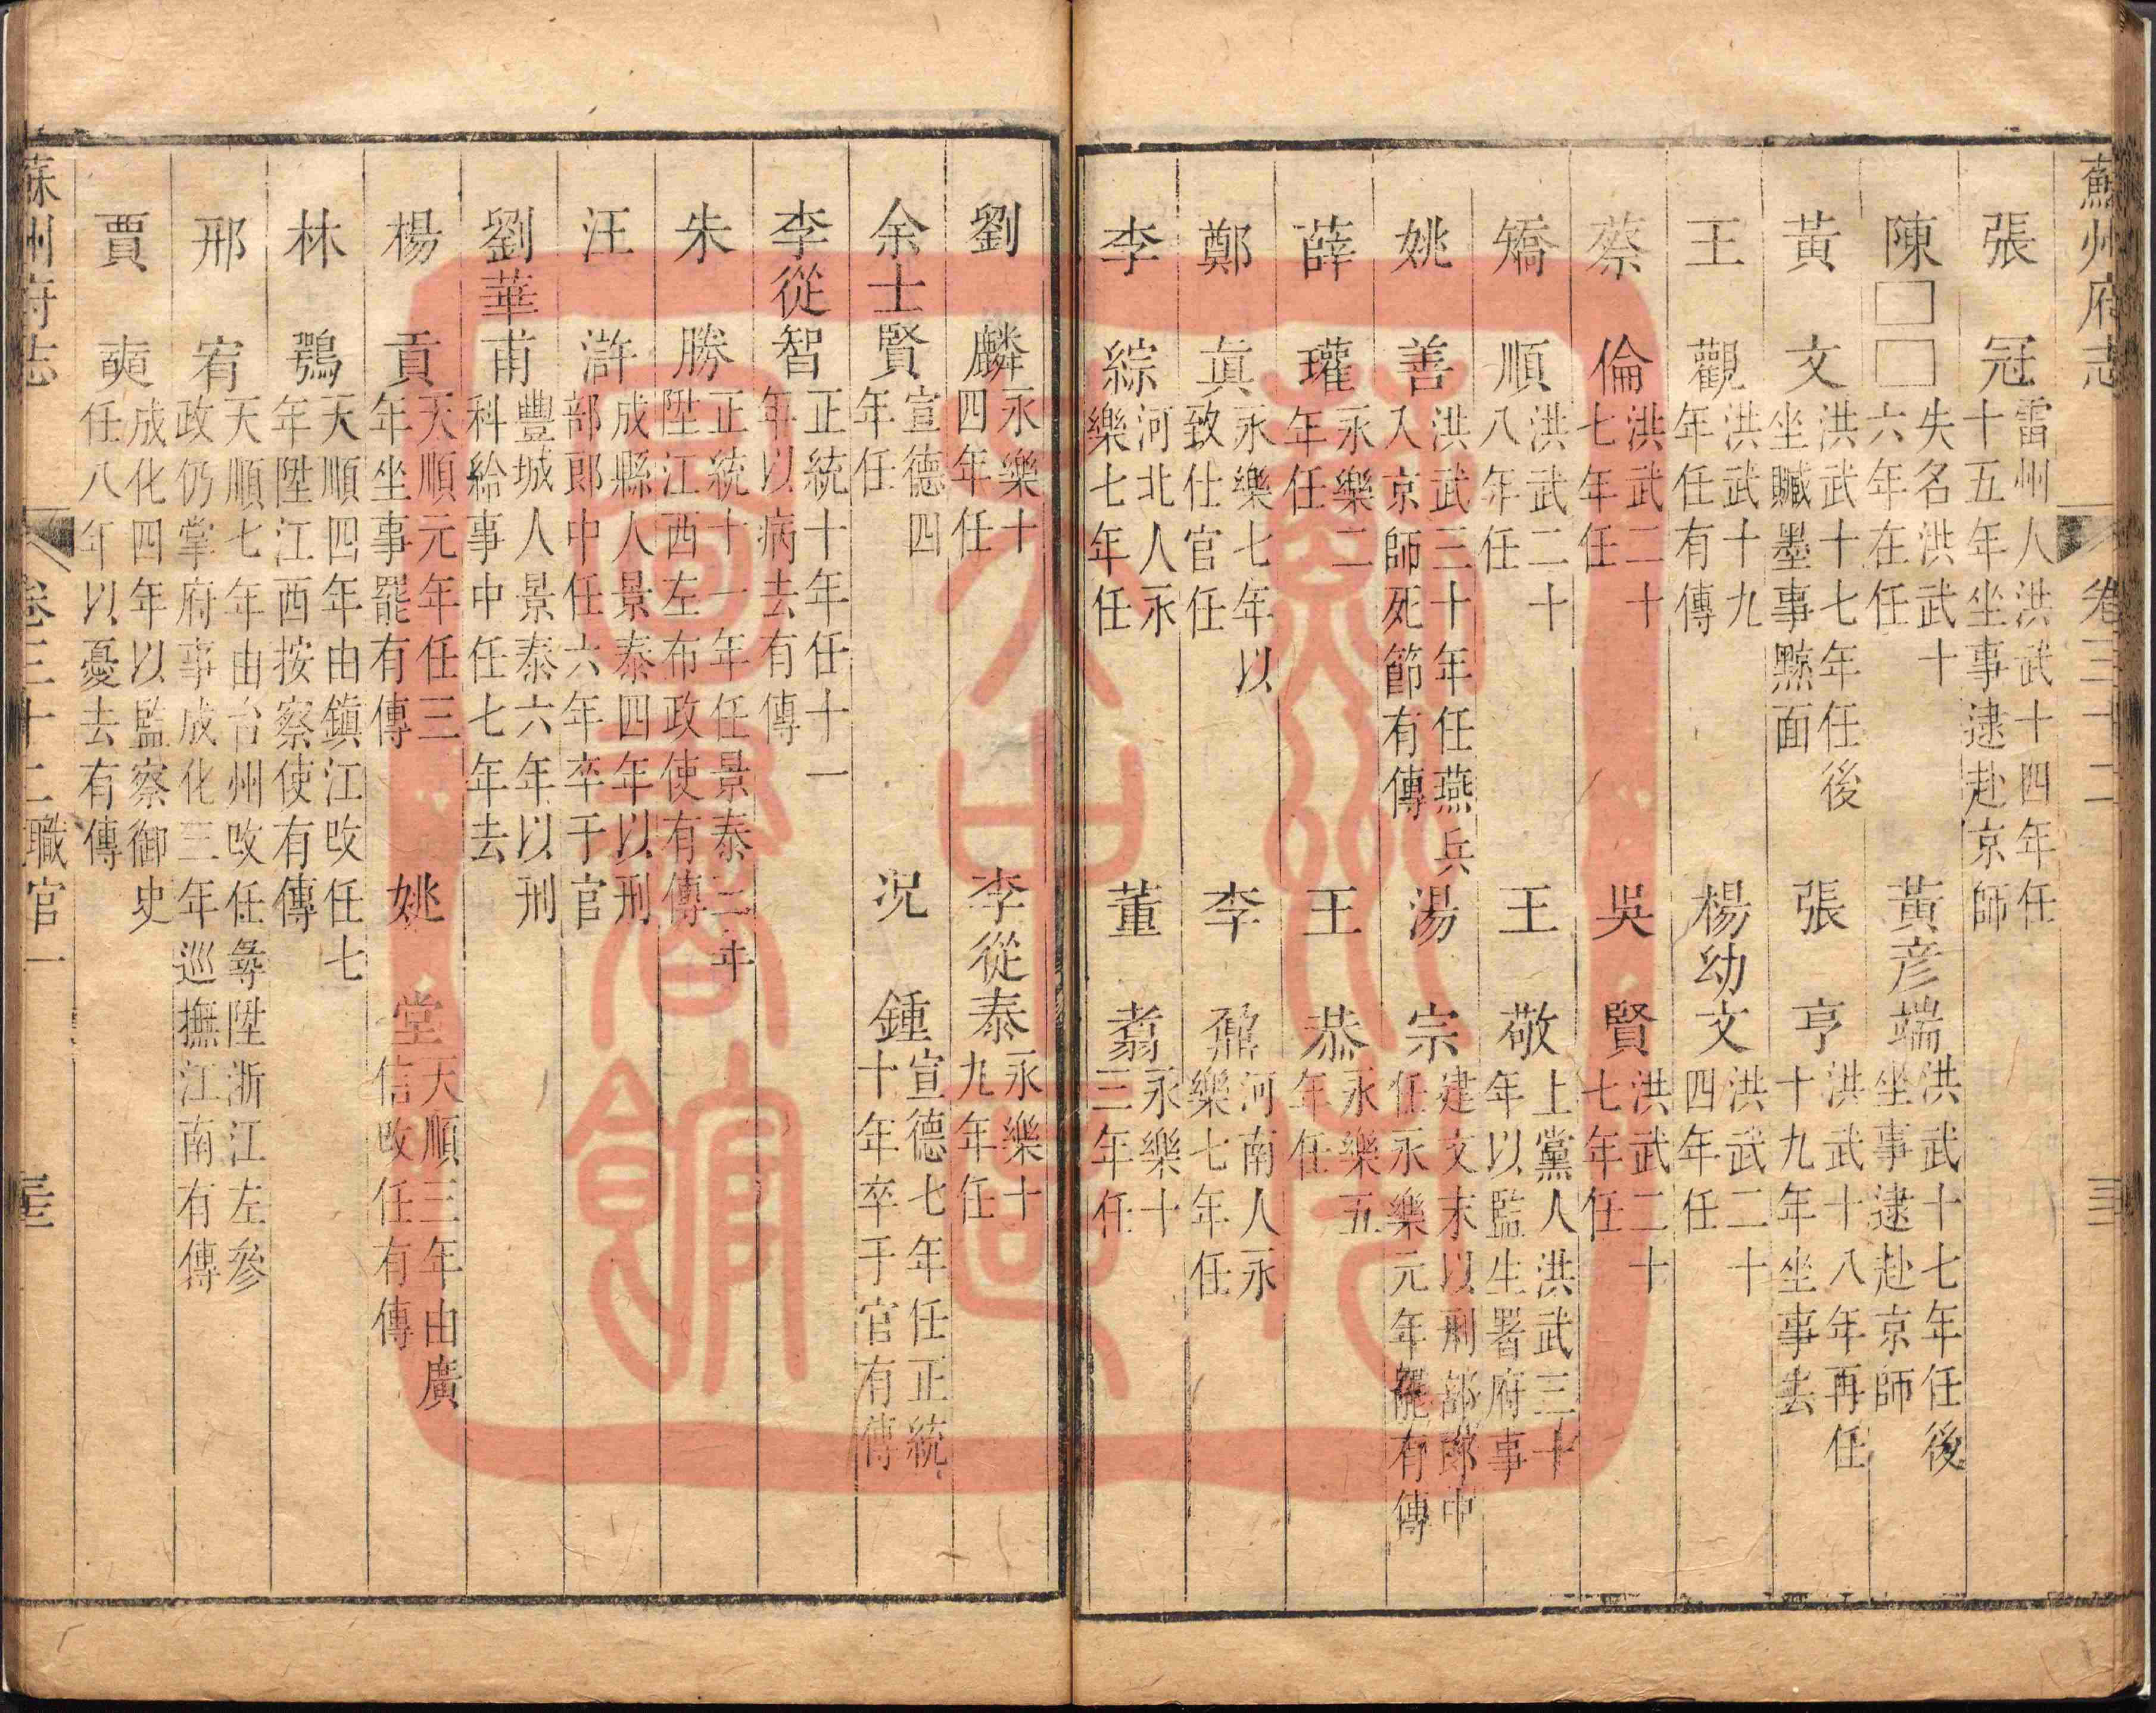 蘇州府志 卷三十二
張冠 雷州人洪武十四年任十五年坐事逮赴京師
陳□□ 失名洪武十六年在任 黃彥端 洪武十七年任後坐事逮赴京師
黃文 洪武十七年任後坐贓墨事黥面 張亨 洪武十八年再任十九年坐事去
王觀 洪武十九年任有傳 楊幼文 洪武二十四年任
蔡倫 洪武二十七年任 吳賢 洪武二十七年任
矯順 洪武二十八年任 王敬 上黨人洪武三十年以監生署府事
姚善 洪武三十年任燕兵入京師死節有傳 湯宗 建文末以刑部郎中任永樂元年罷有傳
薛瓘 永樂二年任 王恭 永樂五年任
鄭眞 永樂七年以致仕官任 李鼐 河南人永樂七年任
李綜 河北人永樂七年任 董翥 永樂十三年任
劉麟 永樂十四年任 李從泰 永樂十九年任
余士賢 宣德四年任 况鍾 宣德七年任正統十年卒于官有傳
李從智 正統十年任十一年以病去有傳
朱勝 正統十一年任景泰二年陞江西左布政使有傳
汪滸 成縣人景泰四年以刑部郎中任六年卒于官
劉華甫 豐城人景泰六年以刑科給事中任七年去
楊貢 天順元年任三年坐事罷有傳 姚堂 天順三年由廣信改任有傳
林鶚 天順四年由鎮江改任七年陞江西按察使有傳
邢宥 天順七年由台州改任彝陞浙江左參政仍掌府事成化三年巡撫江南有傳
賈奭 成化四年以監察御史任八年以憂去有傳
蘇州府志 卷三十二職官一